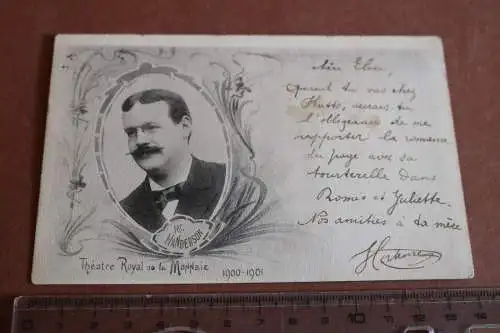 Mr.
HENDERSON
Théatre Royal de la Monnaie 1900-1901
Quand tu vas chez
aurais tu
l'obligeance de me
rapporter la romance
du page avec sa
tourterelle dans
Roméo et Juliette.
Nos amitiés à ta mère